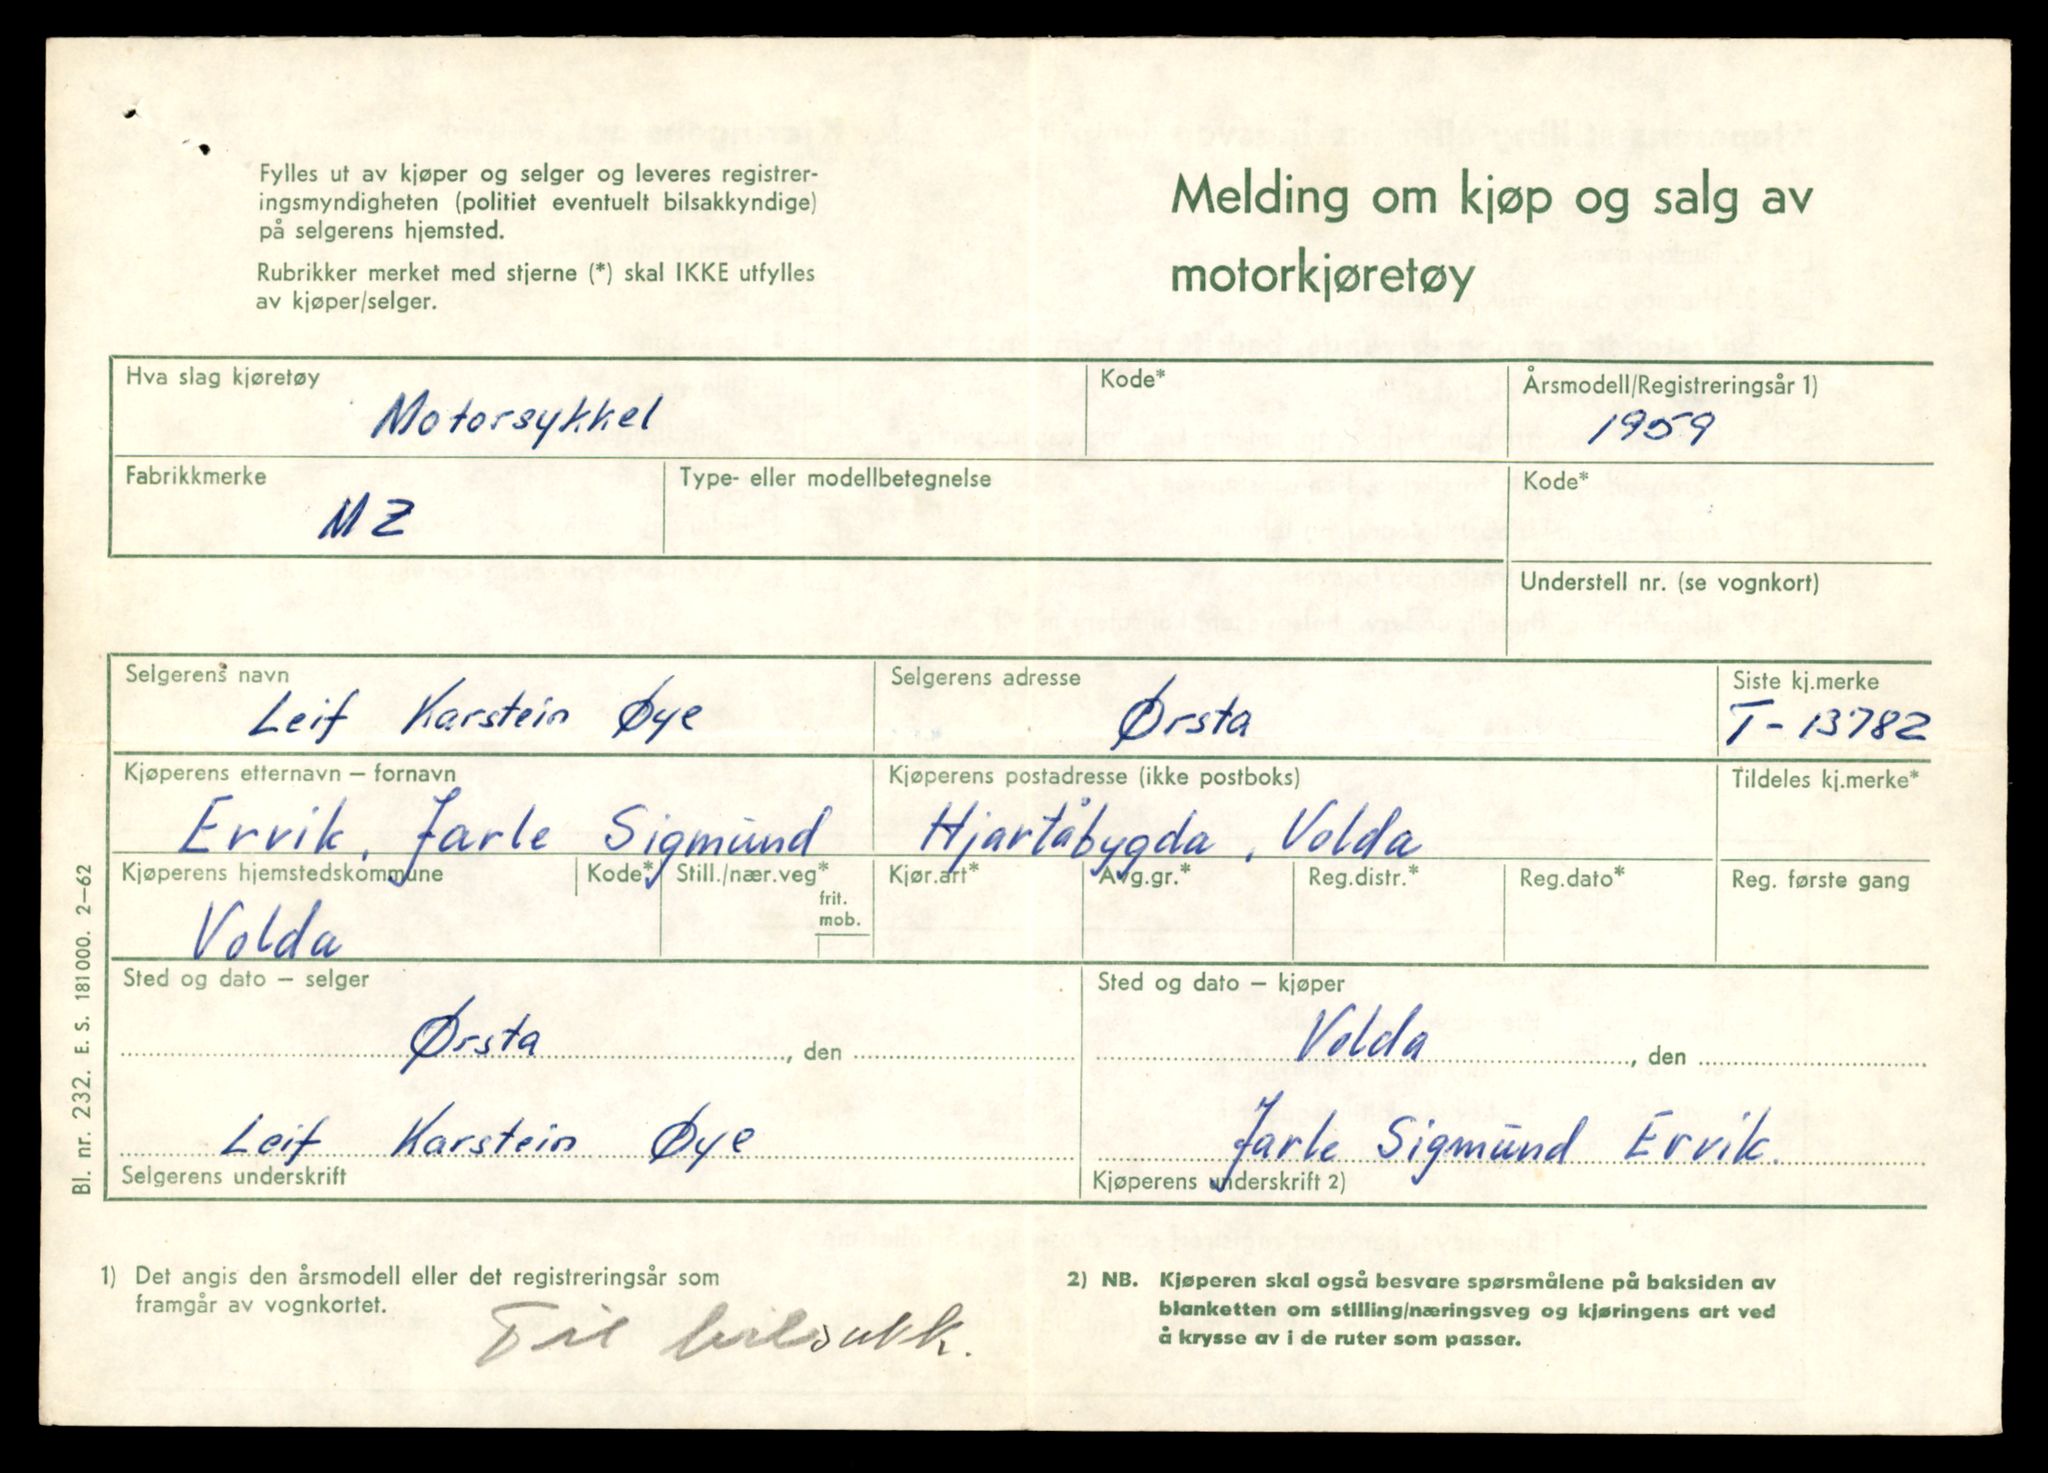 Fylles ut av kjøper og selger og leveres registrer-
ingsmyndigheten (politiet eventuelt bilsakkyndige)
på selgerens hjemsted.
Rubrikker merket med stjerne (*) skal IKKE utfylles
av kjøper/selger.
Melding om kjøp og salg av
motorkjøretøy
Hva slag kjøretøy
Motorsykkel
Kode*
Årsmodell/Registreringsår 1)
1959
Fabrikkmerke
MZ
Type- eller modellbetegnelse
Kode*
Understell nr. (se vognkort)
Selgerens navn
Leif Karstein Øye
Selgerens adresse
Ørsta
Siste kj.merke
T-13782
Kjøperens etternavn – fornavn
Ervik, Jarle Sigmund
Kjøperens postadresse (ikke postboks)
Hjartåbygda, Volda
Tildeles kj.merke*
Kjøperens hjemstedskommune
Volda
Kode*
Still./nær.veg*
frit.
mob.
Kjør.art*
Avg.gr.*
Reg.distr.*
Reg.dato*
Reg. første gang
Sted og dato – selger
Ørsta, den
Leif Karstein Øye
Selgerens underskrift
Sted og dato – kjøper
Volda, den
Jarle Sigmund Ervik.
Kjøperens underskrift 2)
1) Det angis den årsmodell eller det registreringsår som
framgår av vognkortet.
Til bilsakk.
2) NB. Kjøperen skal også besvare spørsmålene på baksiden av
blanketten om stilling/næringsveg og kjøringens art ved
å krysse av i de ruter som passer.
Bl. nr. 232. E. S. 181000. 2–62